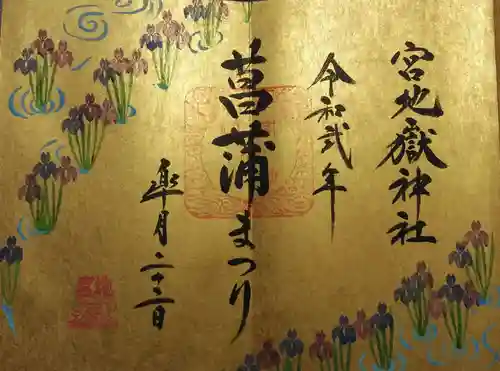 宮地嶽神社
令和弐年
菖蒲まつり
皐月二十二日